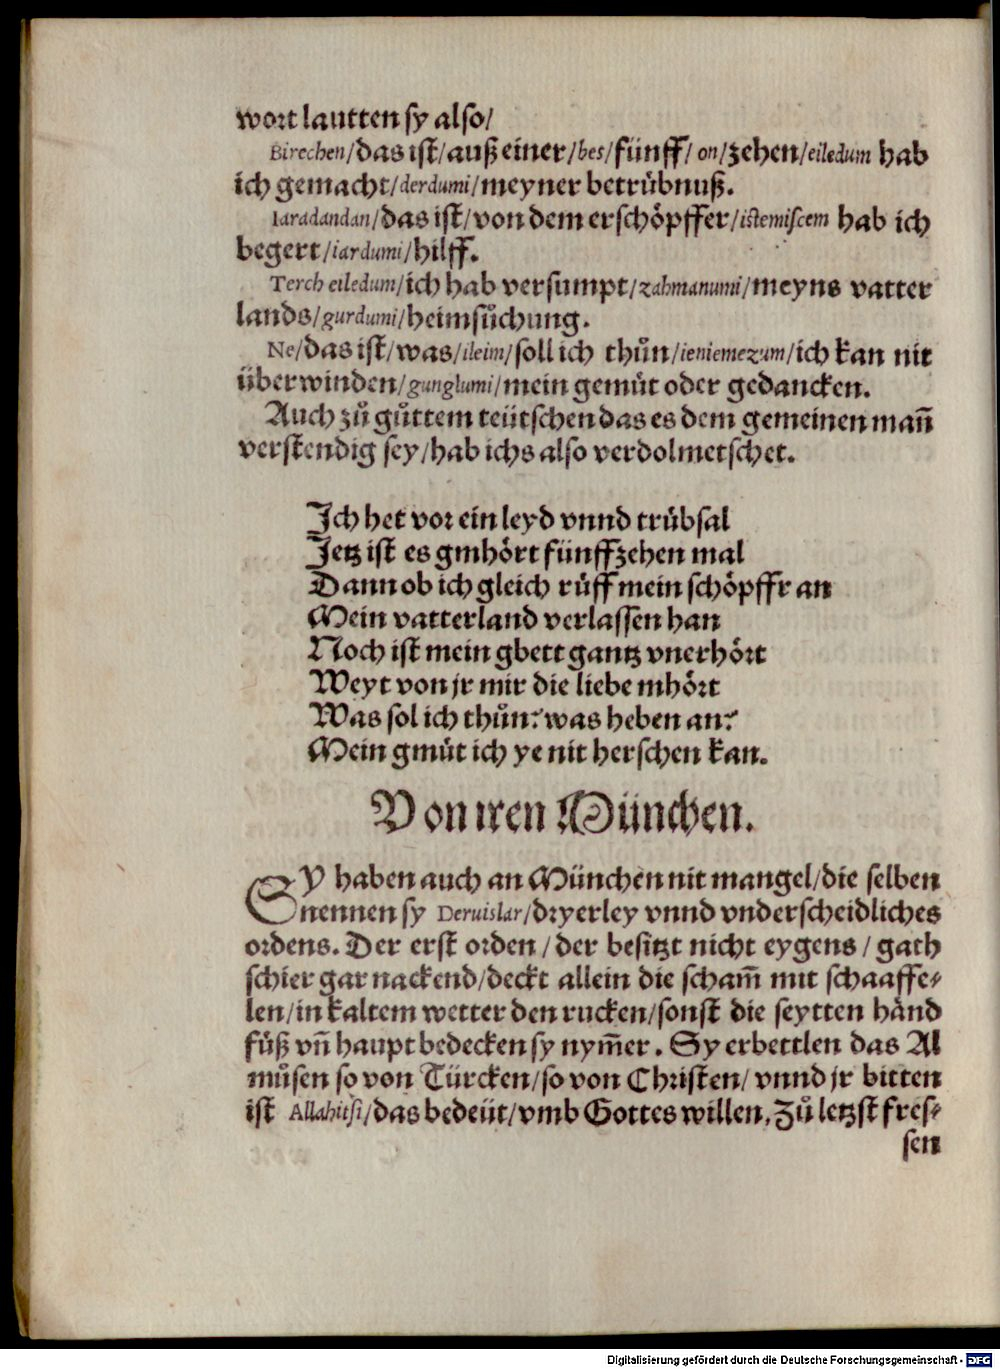 wort lautten sy also/
Birechen/das ist/auß einer/bes/fünff/on/zehen/eiledum hab
ich gemacht/derdumi/meyner betrübnuß.
Iaradandan/das ist/von dem erschöpffer/istemiscem hab ich
begert/iardumi/hilff.
Terch eiledum/ich hab versumpt/zahmanumi/meyns vatter
lands/gurdumi/heimsůchung.
Ne/das ist/was/ileim/soll ich thůn/ieniemezum/ich kan nit
überwinden/gunglumi/mein gemüt oder gedancken.
Auch zů gůttem teütschen das es dem gemeinen mañ
verstendig sey/hab ichs also verdolmetschet.
Ich het vor ein leyd vnnd trübsal
Jetz ist es gmhört fünffzehen mal
Dann ob ich gleich rüff mein schöpffr an
Mein vatterland verlassen han
Noch ist mein gbett gantz vnerhört
Weyt von jr mir die liebe mhört
Was sol ich thůn? was heben an?
Mein gmüt ich ye nit herschen kan.
Von iren München.
SY haben auch an München nit mangel/die selben
nennen sy Deruislar/dryerley vnnd vnderscheidliches
ordens. Der erst orden/der besitzt nicht eygens/gath
schier gar nackend/deckt allein die scham̃ mit schaaffe-
len/in kaltem wetter den rucken/sonst die seytten händ
füß vñ haupt bedecken sy nym̃er. Sy erbettlen das Al
můsen so von Türcken/so von Christen/vnnd jr bitten
ist Allahitsi/das bedeüt/vmb Gottes willen, Zů letzst fres-
sen
Digitalisierung gefördert durch die Deutsche Forschungsgemeinschaft - DFG